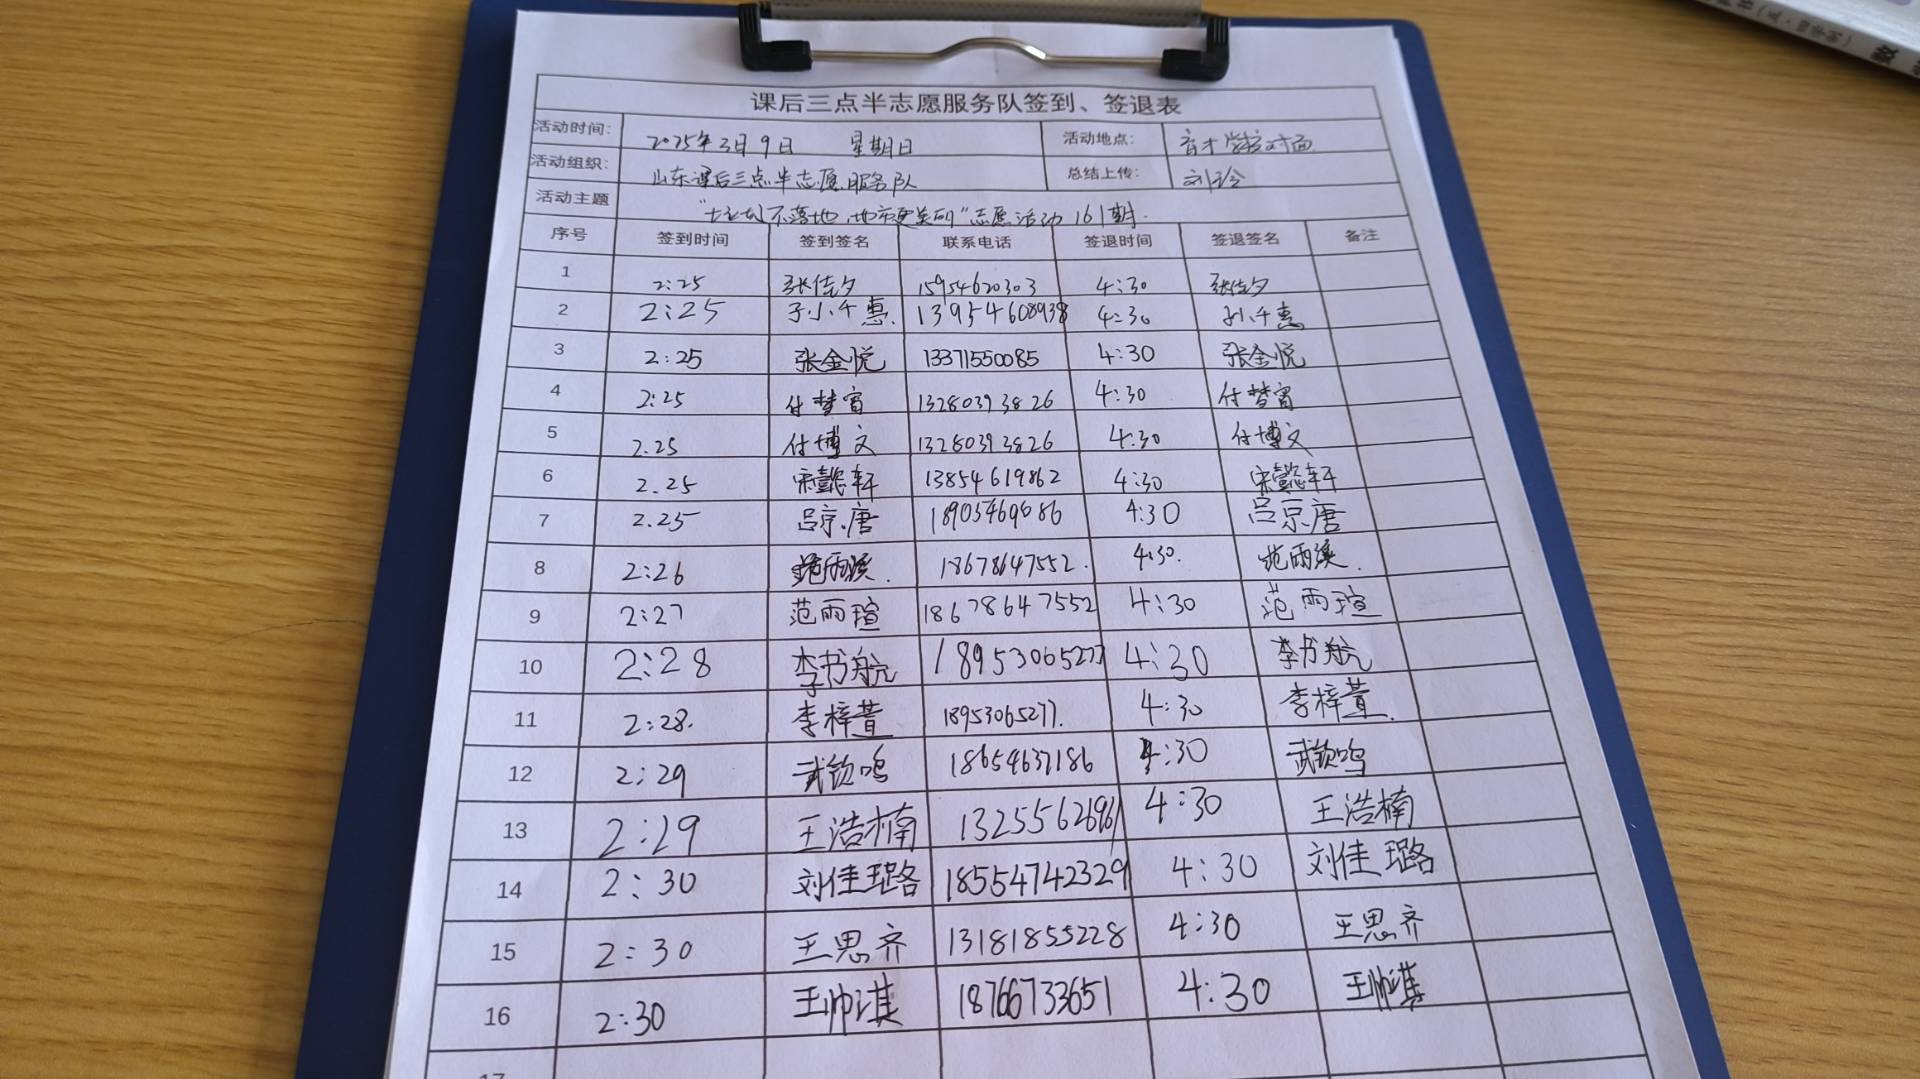 课后三点半志愿服务队签到、签退表
活动时间: 2025年3月9日 星期日 活动地点: 育才学校对面
活动组织: 山东课后三点半志愿服务队 总结上传: 刘玲
活动主题 "垃圾不落地,城市更美丽"志愿活动161期.
序号 签到时间 签到签名 联系电话 签退时间 签退签名 备注
1 2:25 张佳夕 15954620303 4:30 张佳夕
2 2:25 孙小千惠. 13954608938 4:30 孙小千惠
3 2:25 张金悦 13371550085 4:30 张金悦
4 2:25 付梦宵 13280393826 4:30 付梦宵
5 2.25 付博文 13280393826 4:30 付博文
6 2.25 宋懿轩 13854619862 4:30 宋懿轩
7 2.25 吕京唐 4:30 吕京唐
8 2:26 范雨溪. 18678647552. 4:30. 范雨溪.
9 2:27 范雨瑄 18678647552 4:30 范雨瑄
10 2:28 李书航 18953065277 4:30 李书航
11 2:28. 李梓萱 18953065277. 4:30 李梓萱.
12 2:29 武钦鸣 18654637186 4:30 武钦鸣
13 2:29 王浩楠 13255626961 4:30 王浩楠
14 2:30 刘佳璐 18554742329 4:30 刘佳璐
15 2:30 王思齐 13181855228 4:30 王思齐
16 2:30 王帅淇 18766733651 4:30 王帅淇
17